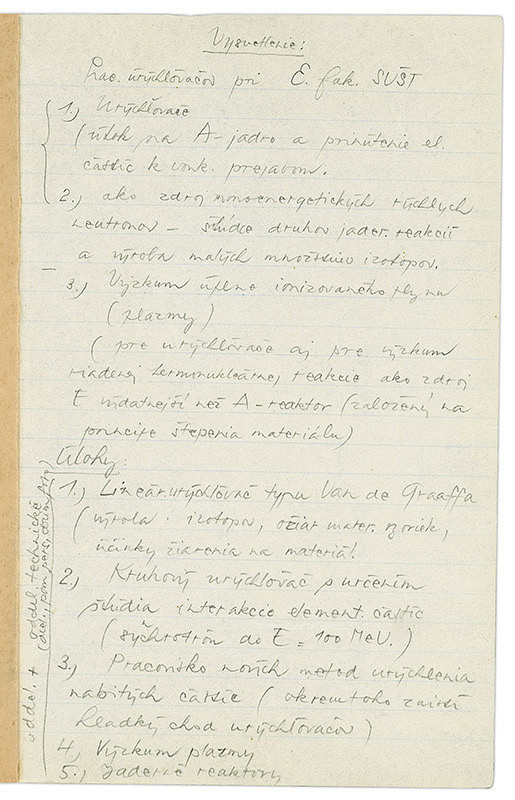 Vysvetlenie:
Prac. urýchľovačov pri E. fak. SVŠT
1., Urýchľovače
(útok na A-jadro a prinútenie el.
častíc k vonk. prejavom.
2., ako zdroj monoenergetických rýchlych
neutronov - štúdie druhov jader. reakcií
a výroba malých množstiev izotopov.
3., Výzkum úplne ionizovaného plynu
(plazmy)
(pre urýchľovače aj pre výzkum
riadenej termonukleárnej reakcie ako zdroj
E výdatnejší než A-reaktor (založený na
principe štepenia materiálu)
Úlohy:
1., Lineár. urýchľovač typu Van de Graaffa
(výroba izotopov, ožiar. mater. vzoriek,
účinky žiarenia na materiál.
2., Kruhový urýchľovač s určením
štúdia interakcie element. častíc
(sýchrotrón do E = 100 MeV.)
3., Pracovisko nových metod urýchlenia
nabitých častíc (okrem toho zaistí
hladký chod urýchľovačov)
4, Výzkum plazmy
5., Jaderné reaktory
oddel. + oddel. technické
(diel., pom. pers.,